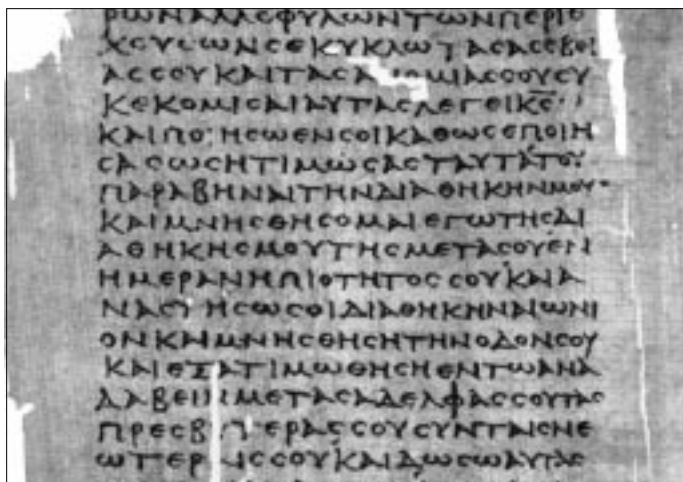 ΡΩΝΑΛΛΟΦΥΛΩΝΤΩΝΠΕΡΙΕ
ΧΟΥϹΩΝϹΕΚΥΚΛΩΤΑϹΑϹΕΒΕΙ
ΑϹϹΟΥΚΑΙΤΑϹΑΝΟΜΙΑϹϹΟΥϹΥ
ΚΕΚΟΜΙϹΑΙΑΥΤΑϹΛΕΓΕΙΚ̅Ϲ̅
ΚΑΙΠΟΙΗϹΩΕΝϹΟΙΚΑΘΩϹΕΠΟΙΗ
ϹΑϹΩϹΗΤΙΜΩϹΑϹΤΑΥΤΑΤΟΥ
ΠΑΡΑΒΗΝΑΙΤΗΝΔΙΑΘΗΚΗΝΜΟΥ·
ΚΑΙΜΝΗϹΘΗϹΟΜΑΙΕΓΩΤΗϹΔΙ
ΑΘΗΚΗϹΜΟΥΤΗϹΜΕΤΑϹΟΥΕΝ
ΗΜΕΡΑΝΗΠΙΟΤΗΤΟϹϹΟΥΚΑΙΑ
ΝΑϹΤΗϹΩϹΟΙΔΙΑΘΗΚΗΝΑΙΩΝΙ
ΟΝΚΑΙΜΝΗϹΘΗϹΗΤΗΝΟΔΟΝϹΟΥ
ΚΑΙΕΞΑΤΙΜΩΘΗϹΗΕΝΤΩΑΝΑ
ΛΑΒΕΙΝΜΕΤΑϹΑΔΕΛΦΑϹϹΟΥΤΑϹ
ΠΡΕϹΒΥΤΕΡΑϹϹΟΥϹΥΝΤΑΙϹΝΕ
ΩΤΕΡΑΙϹϹΟΥΚΑΙΔΩϹΩΑΥΤΑϹ